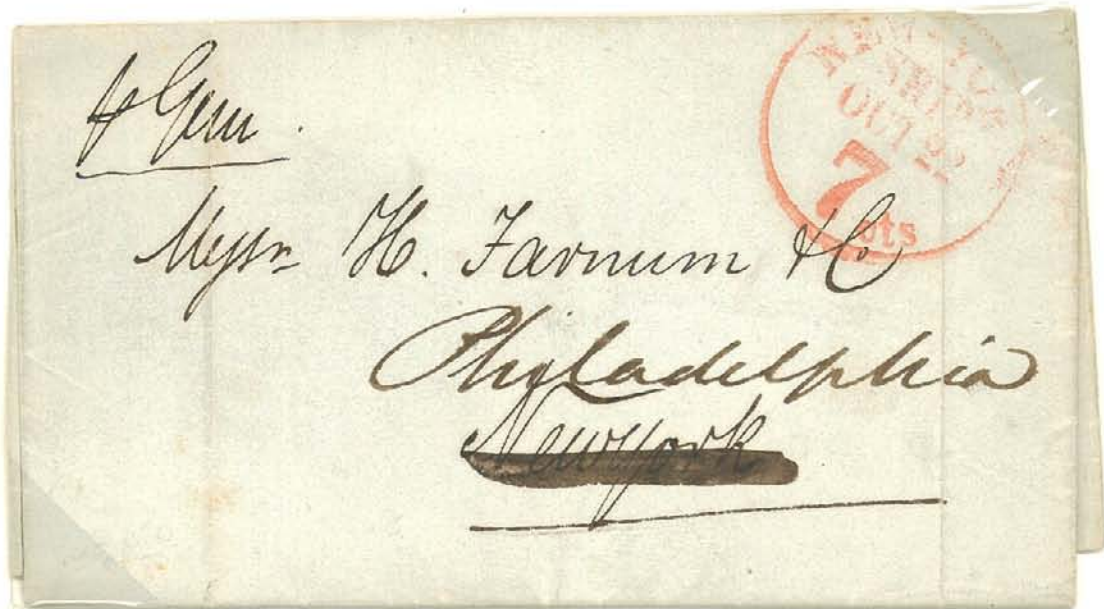 p Gem.
NEW-YORK
SHIP
OCT 22
7
cts
Messrs H. Farnum & Co
Philadelphia
New York